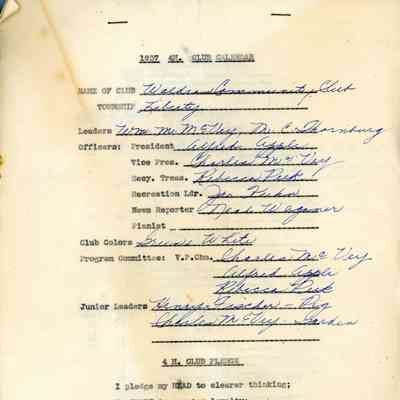 1937 4H. CLUB CALENDAR
NAME OF CLUB Waldron Community Club
TOWNSHIP Liberty
Leaders Wm. M. McVey, M. C. Thornburg
Officers: President Alfred Apple
Vice Pres. Charles McVey
Secy. Treas. Rebecca Peek
Recreation Ldr. Joe Kuhn
News Reporter Neal Wagoner
Pianist
Club Colors Green White
Program Committee: V.P.Chm. Charles McVey
Alfred Apple
Rebecca Peek
Junior Leaders Henrietta Fischer - Pig
Charles McVey - Garden
4 H. CLUB PLEDGE
I pledge my HEAD to clearer thinking;